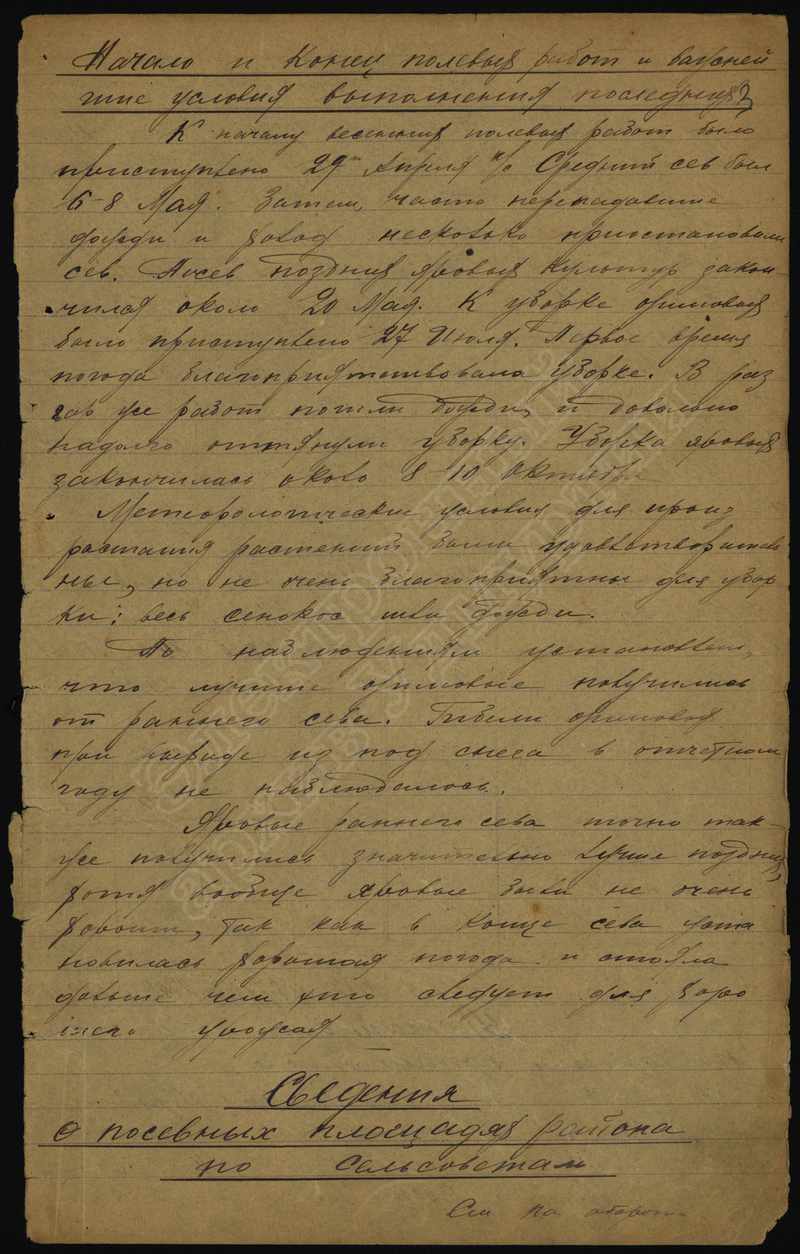 Начало и Конец полевых работ и важней
шие условия выполнения последних?
К началу весенних полевых работ было
приступлено 29го Апреля н/с Средний сев был
6-8 Мая. Затем, часто перепадавшие
дожди и холод несколько приостановили
сев. Посев поздних яровых культур закон-
чился около 20 Мая. К уборке озимовых
было приступлено 27 Июля. Первое время
погода благоприятствовала уборке. В раз
гар же работ пошли дожди, и довольно
надолго оттянули уборку. Уборка яровых
закончилась около 8 10 Октября
Метеорологические условия для произ
растания растений были удовлетворитель
ные, но не очень благоприятны для убор
ки; весь сенокос шли дожди.
По наблюдениям установлен,
что лучшие озимовые получились
от раннего сева. Гибели озимовых
при выходе из под снега в отчетном
году не наблюдалось.
Яровые раннего сева точно так-
же получились значительно лучше поздних,
хотя вообще яровые были не очень
хороши, так как в конце сева уста
новилась хорошая погода и стояла
дольше чем это следует для хоро
шего урожая
Сведения
о посевных площадях района
по сельсоветам
См на оборот.